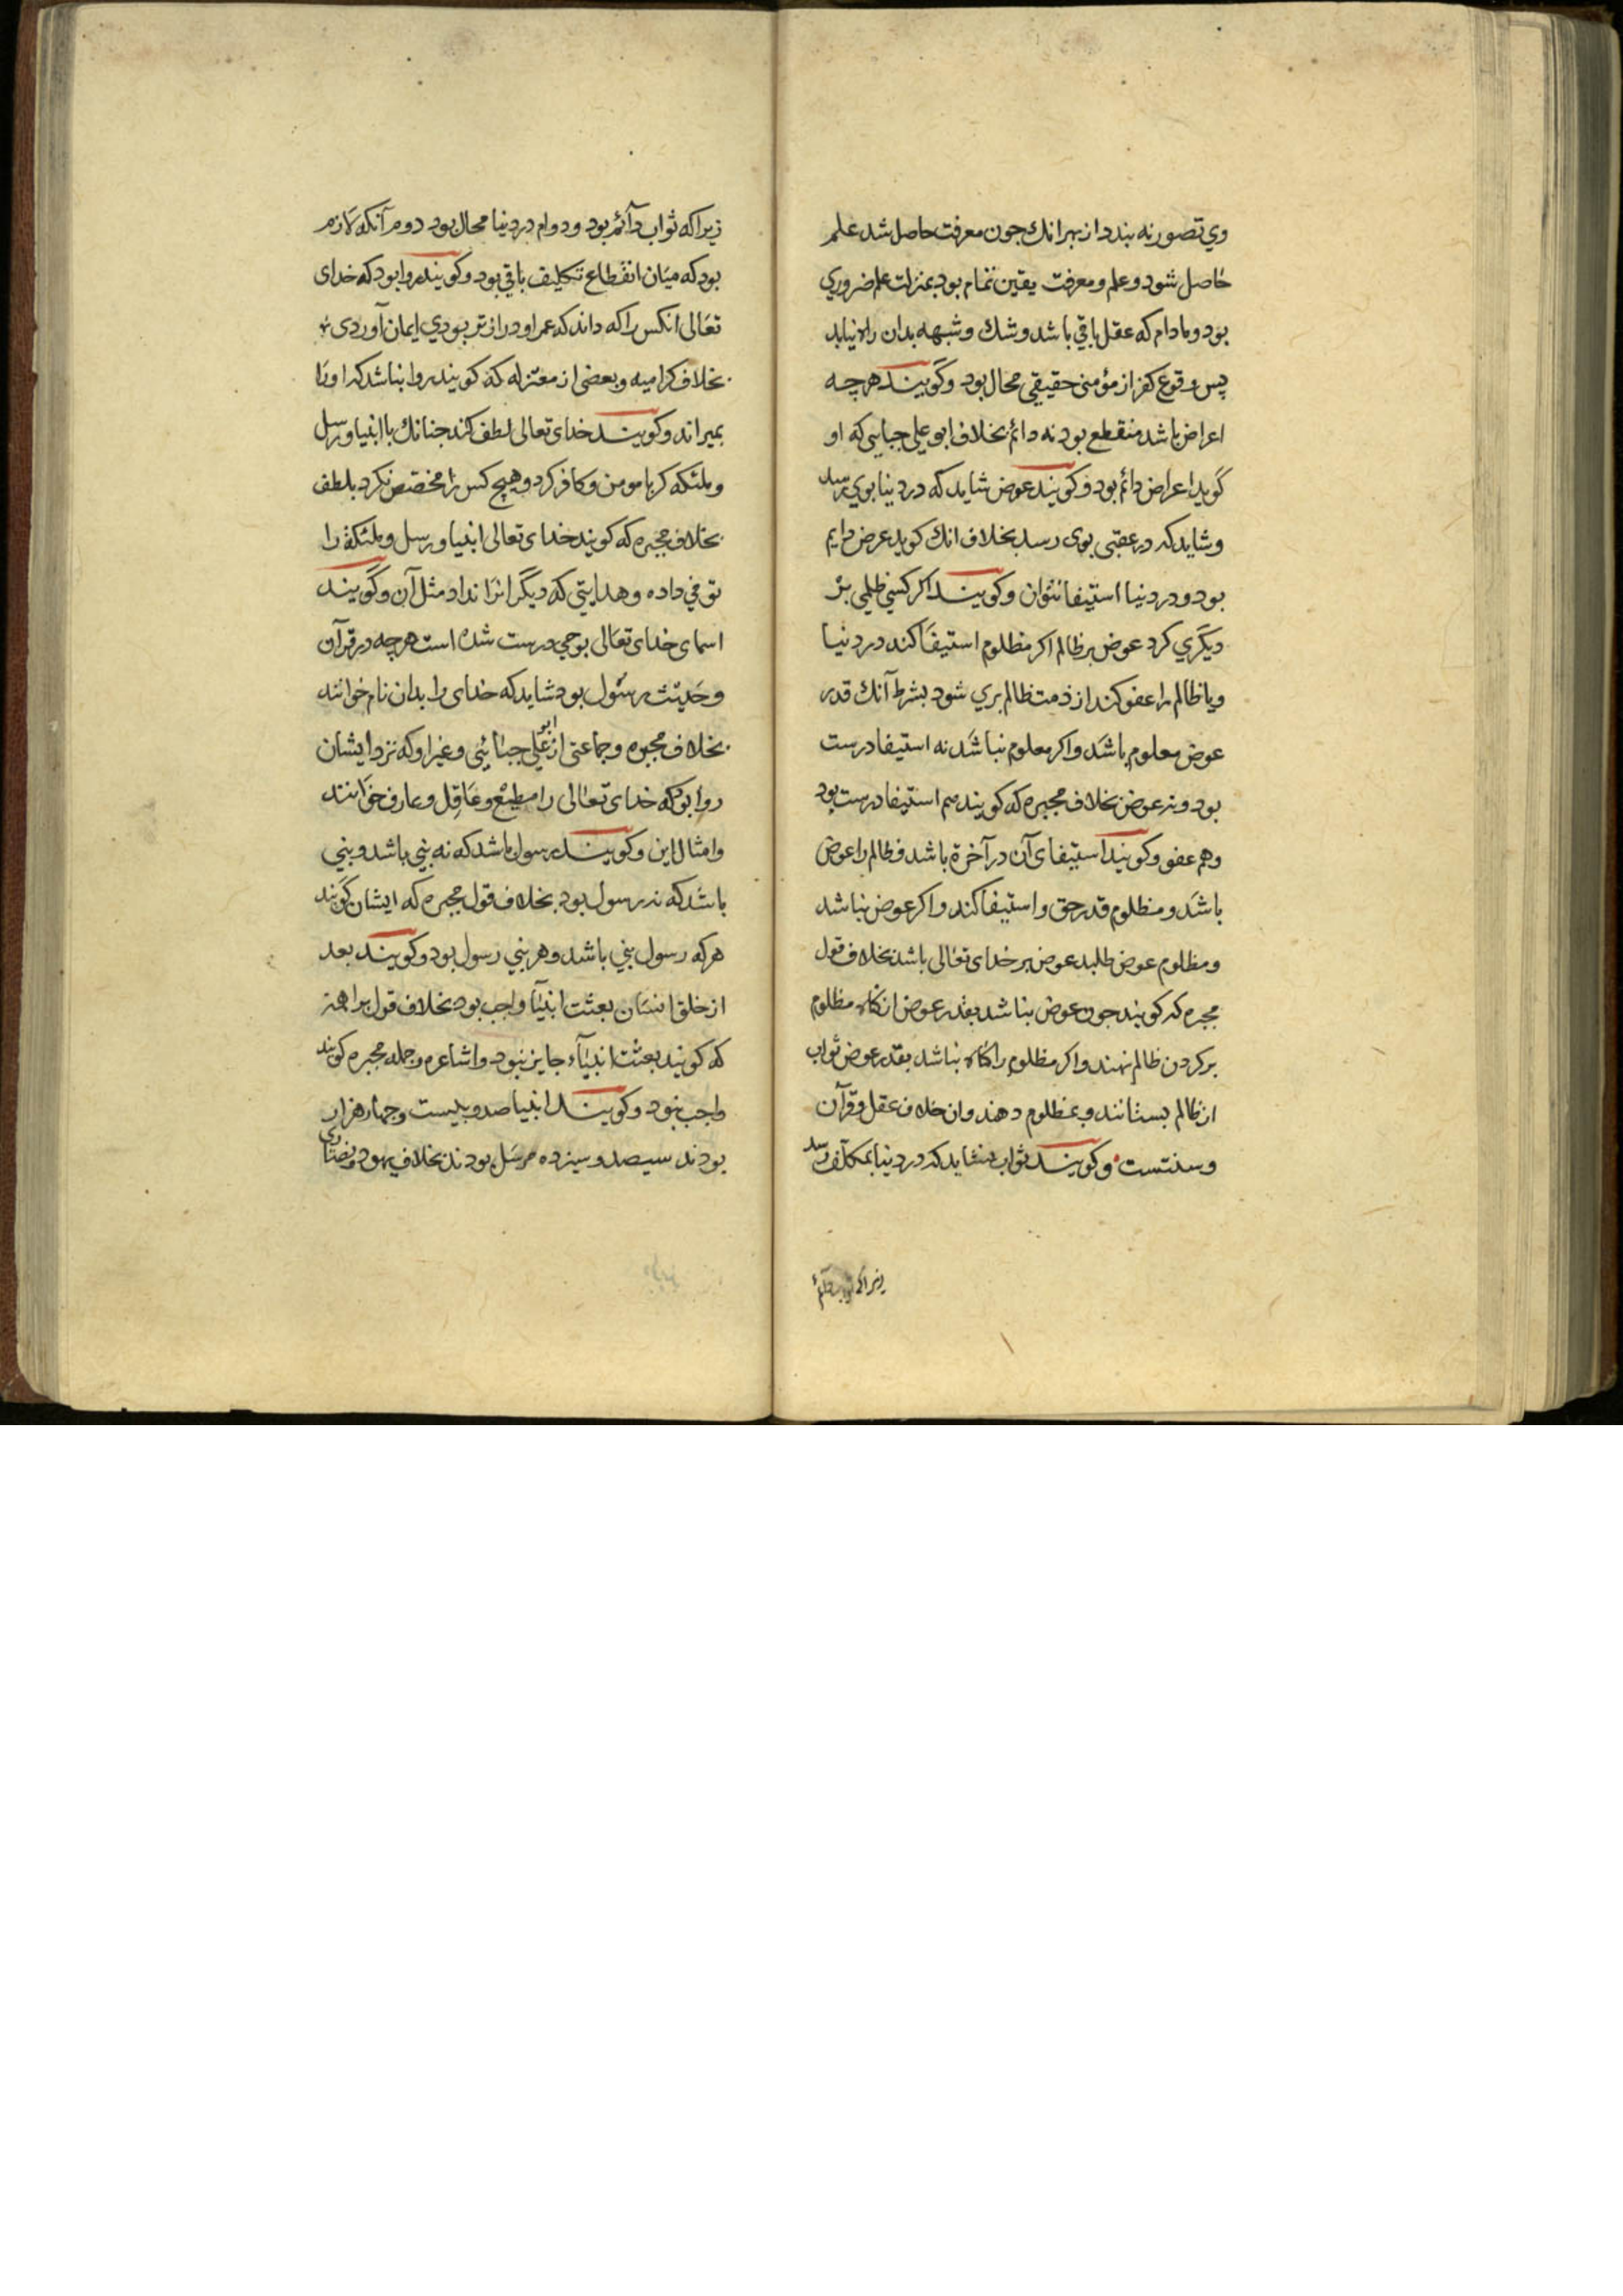 وي تصور نه بندد از بهر انك جون معرفت حاصل شد علم
حاصل شود و علم و معرفت يقين تمام بود بمنزلت علم ضروري
بود و مادام كه عقل باقي باشد و شك و شبهه بدان راه نيابد
پس وقوع كفر از مؤمن حقيقي محال بود و گويند هرچه
اعراض باشد منقطع بود نه دائم بخلاف ابو علي جبايي كه او
گويد اعراض دائم بود و كويند عوض شايد كه در دنيا بوي رسد
و شايد كه در عقبى بوى رسد بخلاف انك كويد عرض دايم
بود و در دنيا استيفا نتوان و كويند اكر كسي ظلمي بر
ديگري كرد عوض بر ظالم اكر مظلوم استيفا كند در دنيا
و يا ظالم را عفو كند از ذمت ظالم بري شود بشرط آنك قدر
عوض معلوم باشد و اكر معلوم نباشد نه استيفا درست
بود و نه عوض بخلاف مجبره كه كويند هم استيفا درست بود
و هم عفو و كويند استيفاى آن در آخرة باشد و ظالم را عوض
باشد و مظلوم قدر حق و استيفا كند و اكر عوض نباشد
و مظلوم عوض طلبد عوض بر خداى تعالى باشد بخلاف قول
مجبره كه كويند جون عوض نباشد بقدر عوض از كناه مظلوم
بر كردن ظالم نهند و اكر مظلوم را كناه نباشد بقدر عوض ثواب
از ظالم بستانند و بمظلوم دهند و ان خلاف عقل و قرآن
و سنتست و كويند ثواب نشايد كه در دنيا بمكلف رسد
زيرا كه ثواب دائم
زيرا كه ثواب دآئم بود و دوام در دنيا محال بود دوم آنكه لازم
بود كه ميان انقطاع تكليف باقي بود و كويند روا بود كه خداى
تعالى انكس را كه داند كه عمر او درازتر بودي ايمان آوردى
بخلاف كراميه و بعضى از معتزله كه كويند روا نباشد كه او را
بميراند و كويند خداى تعالى لطف كند جنانك با انبيا و رسل
و ملئكه كر با مومن و كافر كرد و هيچ كس را مختص نكرد بلطف
بخلاف مجبره كه كويند خداى تعالى انبيا و رسل و ملئكه را
توفي داده و هدايتي كه ديگرانرا نداد مثل آن و گويند
اسماى خداى تعالى بوحي درست شده است هرچه در قرآن
و حديث رسول بود شايد كه خداى را بدان نام خوانند
بخلاف مجبره و جماعتى از ابو علي جبائي و غير او كه نزد ايشان
روا بود كه خداى تعالى را مطيع و عاقل و عارف خوانند
و امثال اين و كويند رسول باشد كه نه نبي باشد و نبي
باشد كه نه رسول بود بخلاف قول مجبره كه ايشان گويند
هر كه رسول نبي باشد و هر نبي رسول بود و كويند بعد
از خلق انسان بعثت انبيآ واجب بود بخلاف قول براهمه
كه كويند بعثت انبيآء جايز نبود و اشاعره و جمله مجبره كويند
واجب نبود و كويند انبيا صد و بيست و جهار هزار
بودند سيصد و سيزده مرسل بودند بخلاف يهود و نصارى